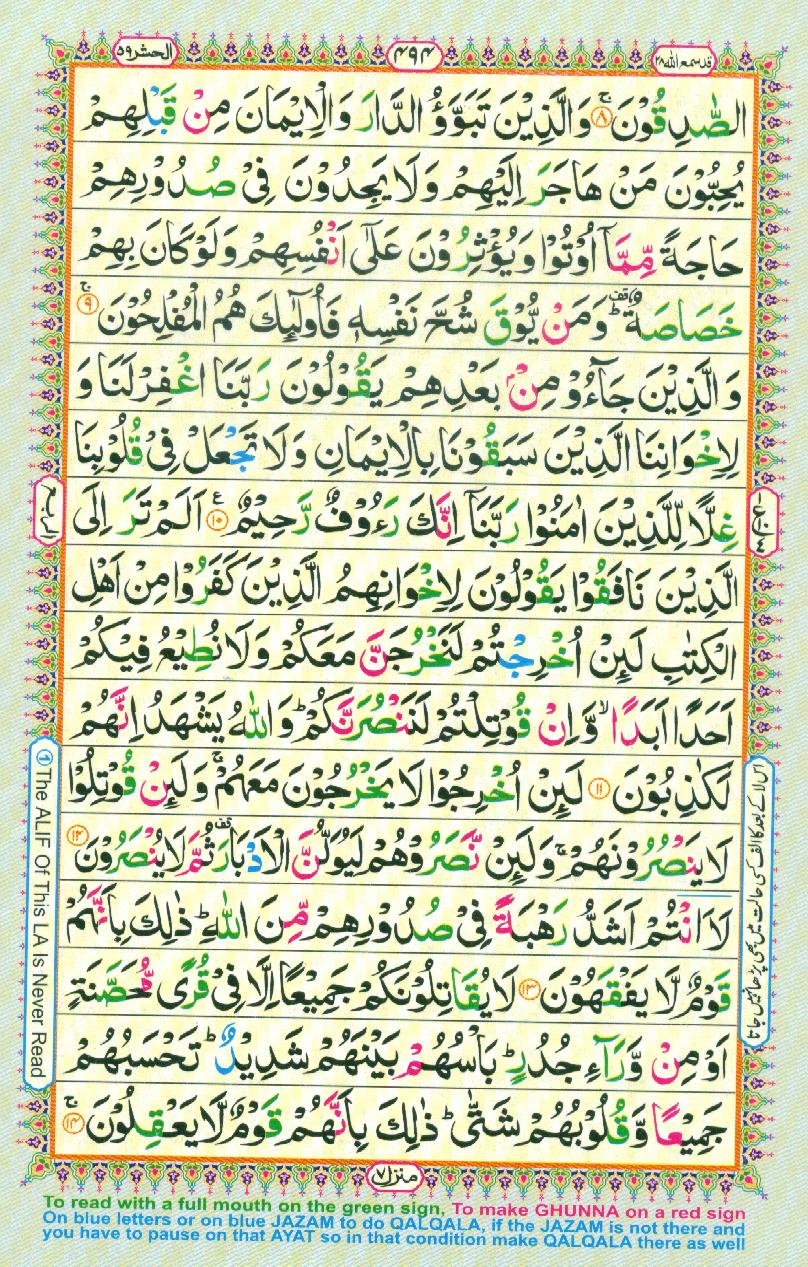 الحشر ۵۹
۴۹۴
قد سمع الله ۲۸
الصّٰدِقُوْنَۚ ۸ وَالَّذِيْنَ تَبَوَّؤُ الدَّارَ وَالْاِيْمَانَ مِنْ قَبْلِهِمْ
يُحِبُّوْنَ مَنْ هَاجَرَ اِلَيْهِمْ وَلَا يَجِدُوْنَ فِيْ صُدُوْرِهِمْ
حَاجَةً مِّمَّاۤ اُوْتُوْا وَيُؤْثِرُوْنَ عَلٰۤى اَنْفُسِهِمْ وَلَوْ كَانَ بِهِمْ
خَصَاصَةٌ ؕ قف وَمَنْ يُّوْقَ شُحَّ نَفْسِهٖ فَاُولٰٓئِكَ هُمُ الْمُفْلِحُوْنَۚ ۹
وَالَّذِيْنَ جَآءُوْ مِنْۢ بَعْدِهِمْ يَقُوْلُوْنَ رَبَّنَا اغْفِرْ لَنَا وَ
لِاِخْوَانِنَا الَّذِيْنَ سَبَقُوْنَا بِالْاِيْمَانِ وَلَا تَجْعَلْ فِيْ قُلُوْبِنَا
غِلًّا لِّلَّذِيْنَ اٰمَنُوْا رَبَّنَاۤ اِنَّكَ رَءُوْفٌ رَّحِيْمٌ ۱۰ ع اَلَمْ تَرَ اِلَى
الربع
الَّذِيْنَ نَافَقُوْا يَقُوْلُوْنَ لِاِخْوَانِهِمُ الَّذِيْنَ كَفَرُوْا مِنْ اَهْلِ
الْكِتٰبِ لَئِنْ اُخْرِجْتُمْ لَنَخْرُجَنَّ مَعَكُمْ وَلَا نُطِيْعُ فِيْكُمْ
اَحَدًا اَبَدًا ۙ وَّاِنْ قُوْتِلْتُمْ لَنَنْصُرَنَّكُمْ ؕ وَاللّٰهُ يَشْهَدُ اِنَّهُمْ
لَكٰذِبُوْنَ ۱۱ لَئِنْ اُخْرِجُوْا لَا يَخْرُجُوْنَ مَعَهُمْ ۚ وَلَئِنْ قُوْتِلُوْا
لَا يَنْصُرُوْنَهُمْ ۚ وَلَئِنْ نَّصَرُوْهُمْ لَيُوَلُّنَّ الْاَدْبَارَ قف ثُمَّ لَا يُنْصَرُوْنَ ۱۲
لَا۠اَنْتُمْ اَشَدُّ رَهْبَةً فِيْ صُدُوْرِهِمْ مِّنَ اللّٰهِ ؕ ذٰلِكَ بِاَنَّهُمْ
قَوْمٌ لَّا يَفْقَهُوْنَ ۱۳ لَا يُقَاتِلُوْنَكُمْ جَمِيْعًا اِلَّا فِيْ قُرًى مُّحَصَّنَةٍ
اَوْ مِنْ وَّرَآءِ جُدُرٍ ؕ بَاْسُهُمْ بَيْنَهُمْ شَدِيْدٌ ؕ تَحْسَبُهُمْ
جَمِيْعًا وَّقُلُوْبُهُمْ شَتّٰى ؕ ذٰلِكَ بِاَنَّهُمْ قَوْمٌ لَّا يَعْقِلُوْنَۚ ۱۴
① The ALIF Of This LA Is Never Read
منزل ۷
To read with a full mouth on the green sign, To make GHUNNA on a red sign
On blue letters or on blue JAZAM to do QALQALA, if the JAZAM is not there and
you have to pause on that AYAT so in that condition make QALQALA there as well